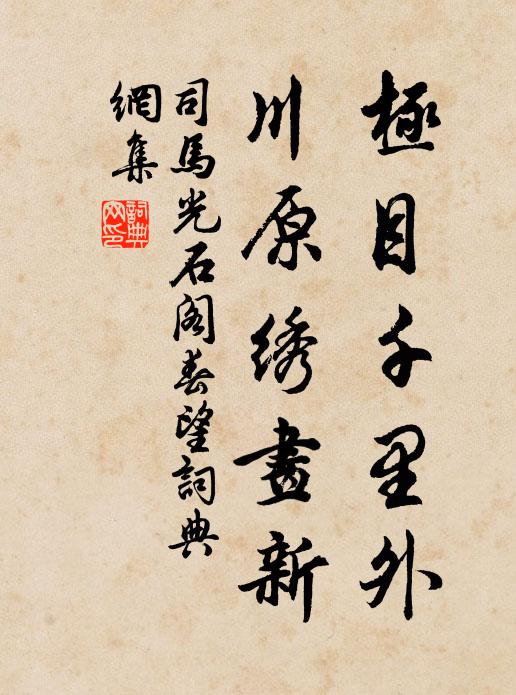 極目千里外
川原绣畫新
司馬光石閣春望詞典
網集
詞典
网印